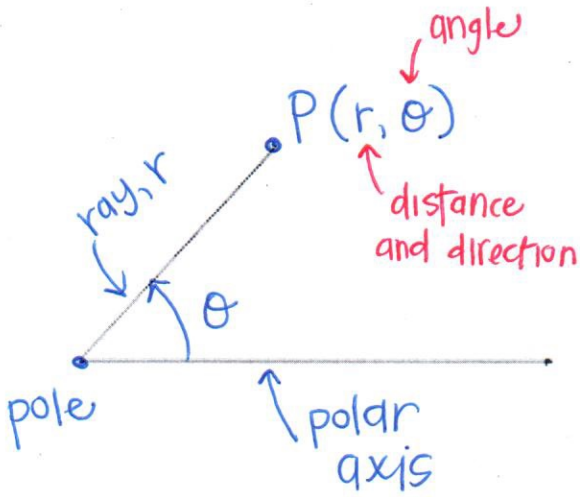 angle
P(r, θ)
ray, r
distance
and direction
θ
pole
polar
axis